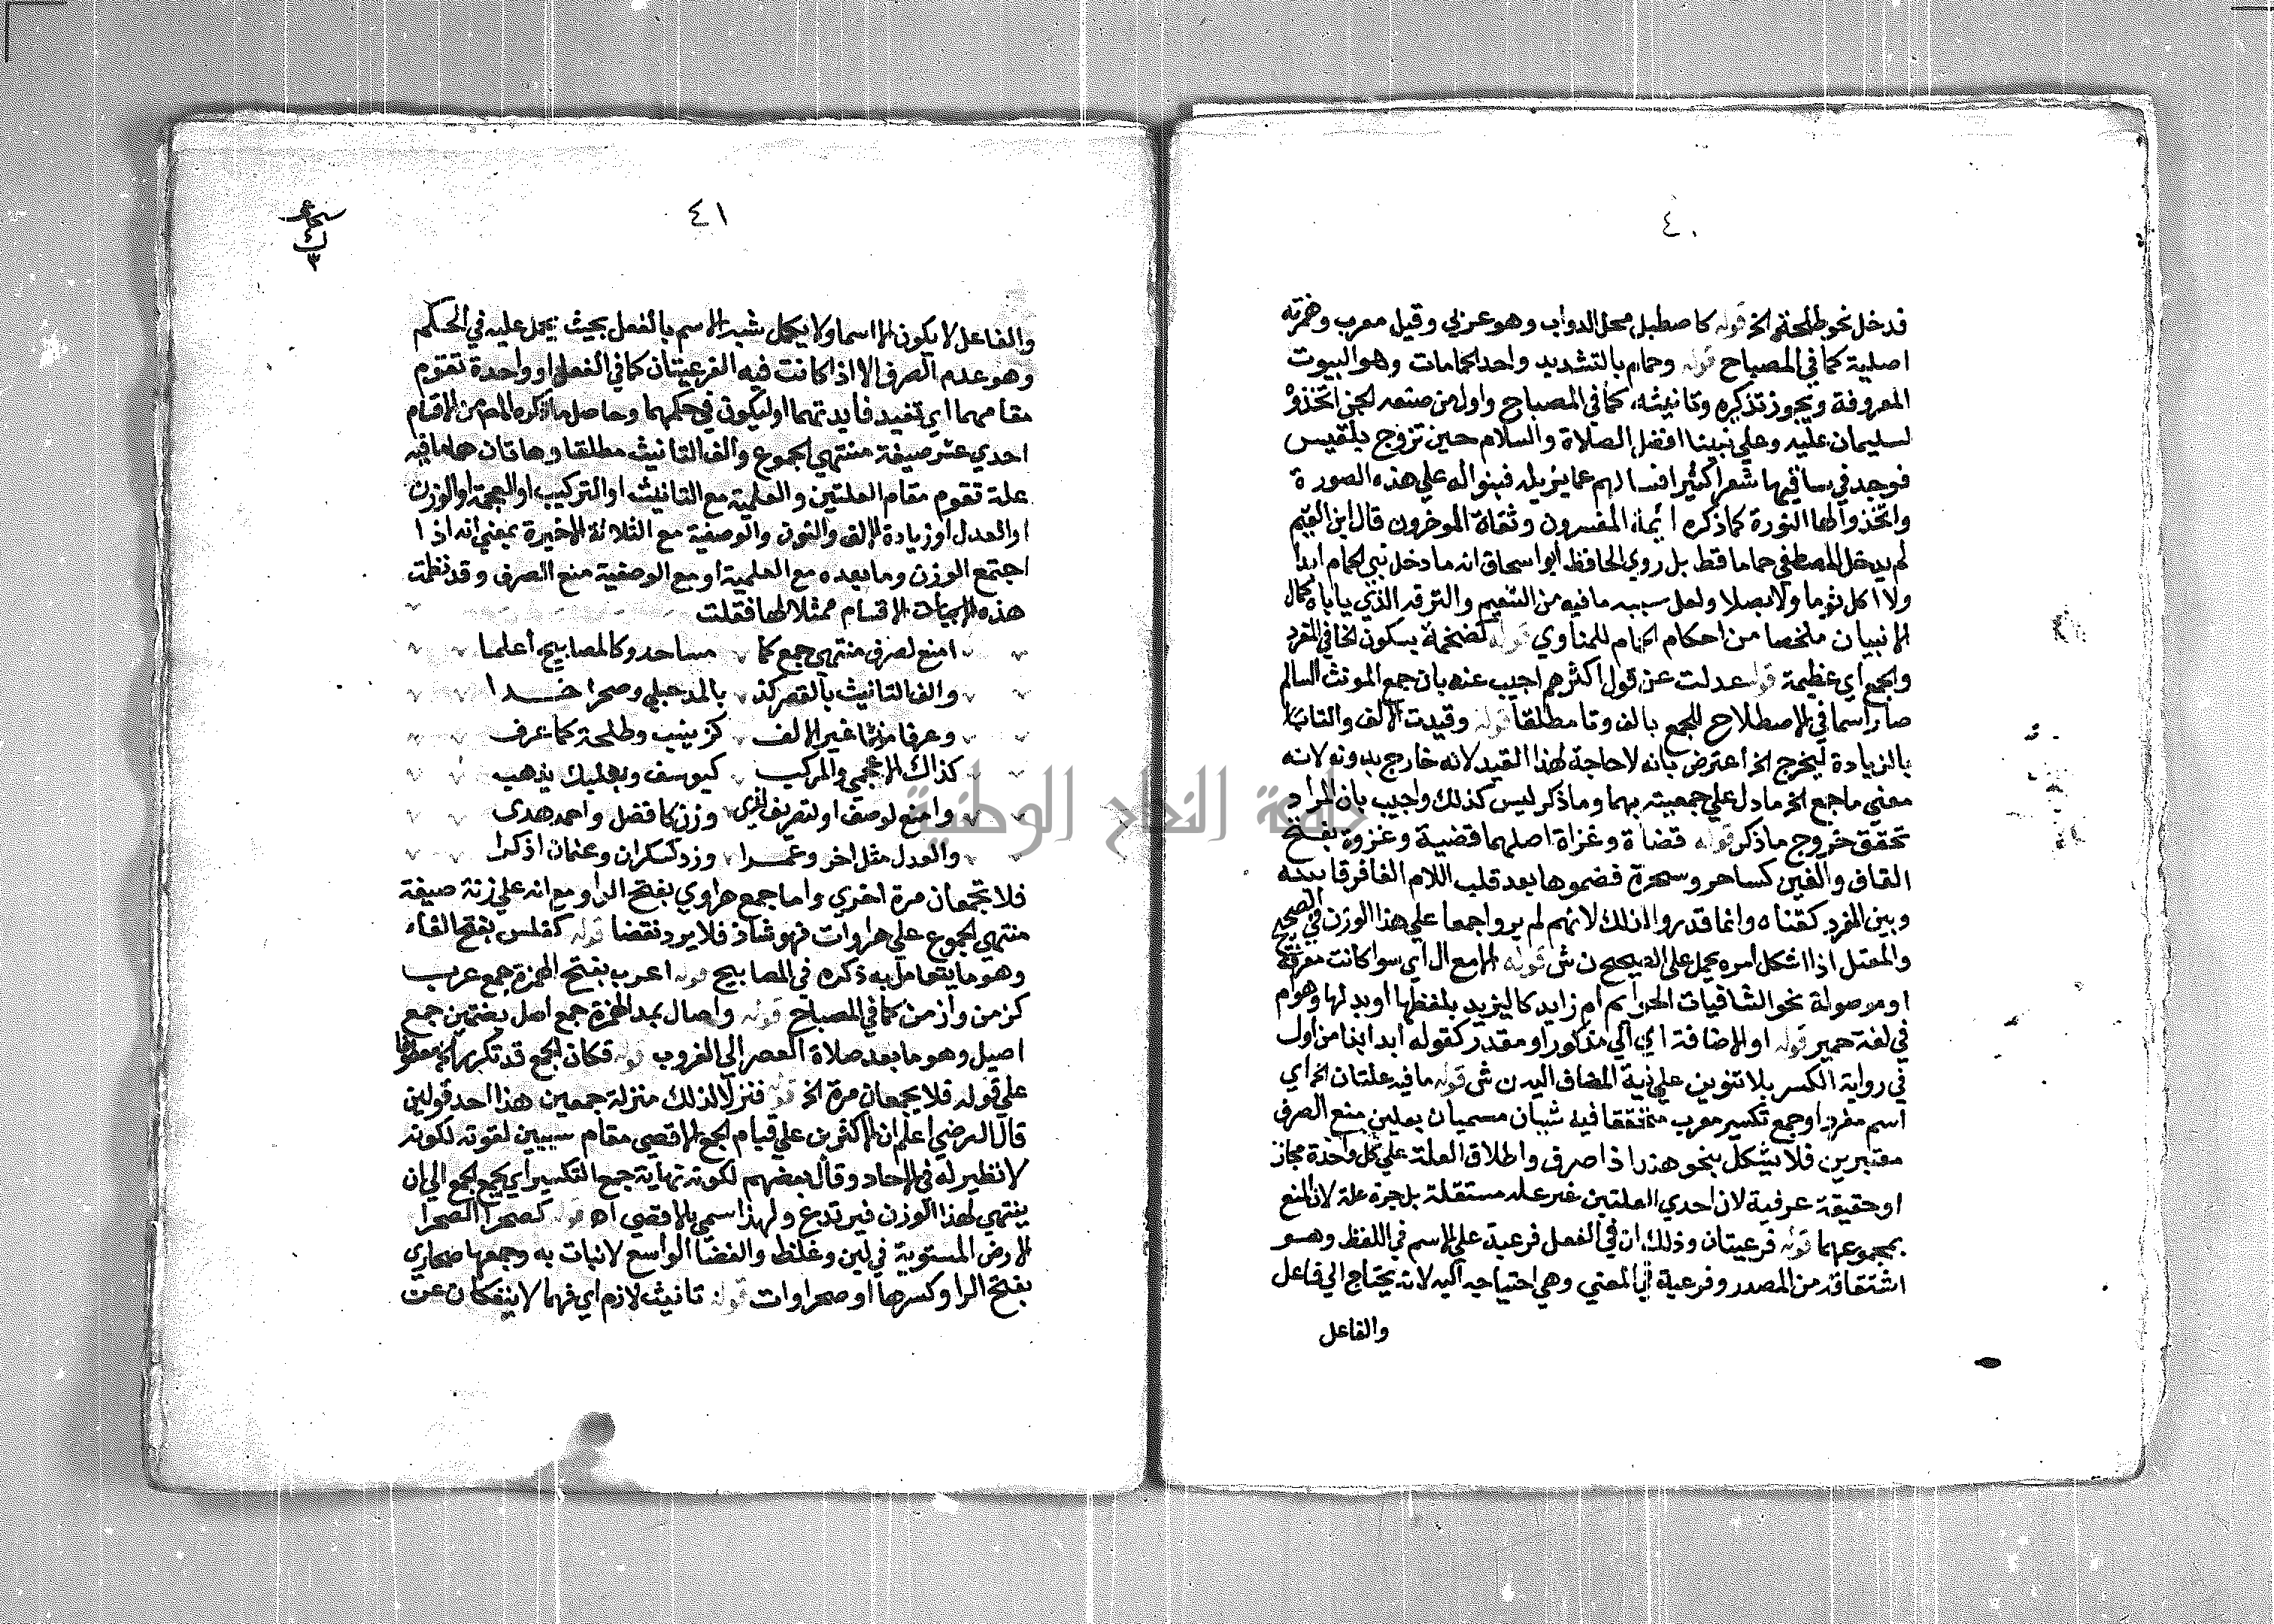 ٤٠
فدخل نحو طلحة الخ قوله كاصطبل محل الدواب وهو عربي وقيل معرب وهمزته
اصلية كما في المصباح قوله وحمام بالتشديد واحد الحمامات وهو البيوت
المعروفة ويجوز تذكيره وتانيثه كما في المصباح واول من صنعه الجن اتخذوه
لسليمان عليه وعلي نبينا افضل الصلاة والسلام حين تزوج بلقيس
فوجد في ساقيها شعرا كثيرا فسالهم عما يزيله فبنوا له علي هذه الصورة
واتخذوا لها النورة كما ذكره ائمة المفسرون وثقاة المؤخرون قال ابن القيم
لم يدخل المصطفي حماما قط بل روي الحافظ ابو اسحاق انه ما دخل نبي الحمام ابدا
ولا اكل ثوما ولا بصلا ولعل سببه ما فيه من التنعيم والترفه الذي ياباه كمال
الانبيان ملخصا من احكام الحمام للمناوي قوله كضخمة بسكون الخا في المفرد
والجمع اي عظيمة قوله عدلت عن قول اكثرهم اجيب عنه بان جمع المونث السالم
صار اسما في الاصطلاح للجمع بالف وتا مطلقا قوله وقيدت الالف والتا
بالزيادة ليخرج الخ اعترض بانه لا حاجة لهذا القيد لانه خارج بدونه لانه
معني ما جمع الخ ما دل علي جمعيته بهما وما ذكر ليس كذلك واجيب بان المراد
تحقق خروج ما ذكر قوله قضاة وغزاة اصلهما قضية وغزوة بفتح
القاف والغين كساحر وسحرة فضموها بعد قلب اللام الفا فرقا بينه
وبين المفرد كقناه وانما قدروا ذلك لانهم لم يروا جمعا علي هذا الوزن في الصحيح
والمعتل اذا اشكل امره يحمل علي الصحيح ن ش قوله الا مع ال اي سوا كانت معرفة
او موصولة نحو الشافيات الحوائم ام زايد كاليزيد بلفظها او بدلها وهوام
في لغة حمير قوله او الاضافة اي الي مذكور او مقدر كقوله ابدا بذا من اول
في رواية الكسر بلا تنوين علي نية المضاف اليه ن ش قوله ما فيه علتان الخ اي
اسم مفرد او جمع تكسير معرب متحققا فيه شبان مسميان بعلتين منع الصرف
معتبرين فلا يشكل بنحو هند اذا صرف واطلاق العلة علي كل واحدة مجاز
او حقيقة عرفية لان احدي العلتين غير علة مستقلة بل جزء علة لان المنع
بمجموعهما قوله فرعيتان وذلك ان في الفعل فرعية علي الاسم في اللفظ وهو
اشتقاقه من المصدر وفرعية في المعني وهي احتياجه اليه لانه يحتاج الي فاعل
والفاعل
٤١
٣
والفاعل لا يكون الا اسما ولا يكمل شبه الاسم بالفعل بحيث يحمل عليه في الحكم
وهو عدم الصرف الا اذا كانت فيه الفرعيتان كما في الفعل او واحدة تقوم
مقامهما اي تفيد فايدتهما او ليكون في حكمهما وحاصل ما ذكره المص من الاقسام
احدي عشر صيغة منتهي الجموع والف التانيث مطلقا وهاتان هما ما فيه
علة تقوم مقام العلتين والعلمية مع التانيث او التركيب او العجمة او الوزن
او العدل او زيادة الالف والنون والوصفية مع الثلاثة الاخيرة بمعني انه اذا
اجتمع الوزن وما بعده مع العلمية او مع الوصفية منع الصرف وقد نظمت
هذه الابيات الاقسام ممثلا لها فقلت
امنع لصرف منتهي جمع كما مساجد وكالمصابيح اعلما
والف التانيث بالقصر كذ بالمد حبلي وصحرا خذا
وعرفا مؤنثا غير الالف كزينب وطلحة كما عرف
كذاك الاعجمي والمركب كيوسف وبعلبك يذهب
وامنع لوصف او لتعريف لذي وزن كافضل واحمد هدي
والعدل مثل اخر وعمرا وزد كسكران وعثمان اذكرا
فلا تجمعان مرة اخري واما جمع هراوي بفتح الراو مع انه علي زنة صيغة
منتهي الجموع علي هراوات فهو شاذ فلا يرد نقضا قوله كفلس بفتح الفاء
وهو ما يتعامل به ذكره في المصابيح قوله اعرب بفتح الهمزة جمع عرب
كزمن وازمن كما في المصباح قوله واصال بمد الهمزة جمع اصل بضمتين جمع
اصيل وهو ما بعد صلاة العصر الي الغروب قوله فكان الجمع قد تكرر الخ معطوفا
علي قوله فلا يجمعان مرة الخ قوله فنزلا لذلك منزلة جمعين هذا احد قولين
قال الرضي اعلم ان الاكثرين علي قيام الجمع الاقصي مقام سببين لقوته لكونه
لا نظير له في الاحاد وقال بعضهم لكونه نهاية جمع التكسير اي يجمع الجمع الي ان
ينتهي لهذا الوزن فيرتدع ولهذا سمي بالاقصي اه قوله كصحرا الصحرا
الارض المستوية في لين وغلظ والفضا الواسع لا نبات به وجمعها صحاري
بفتح الرا وكسرها او صحراوات قوله تانيث لازم اي فهما لا ينفكان عن
جامعة النجاح الوطنية